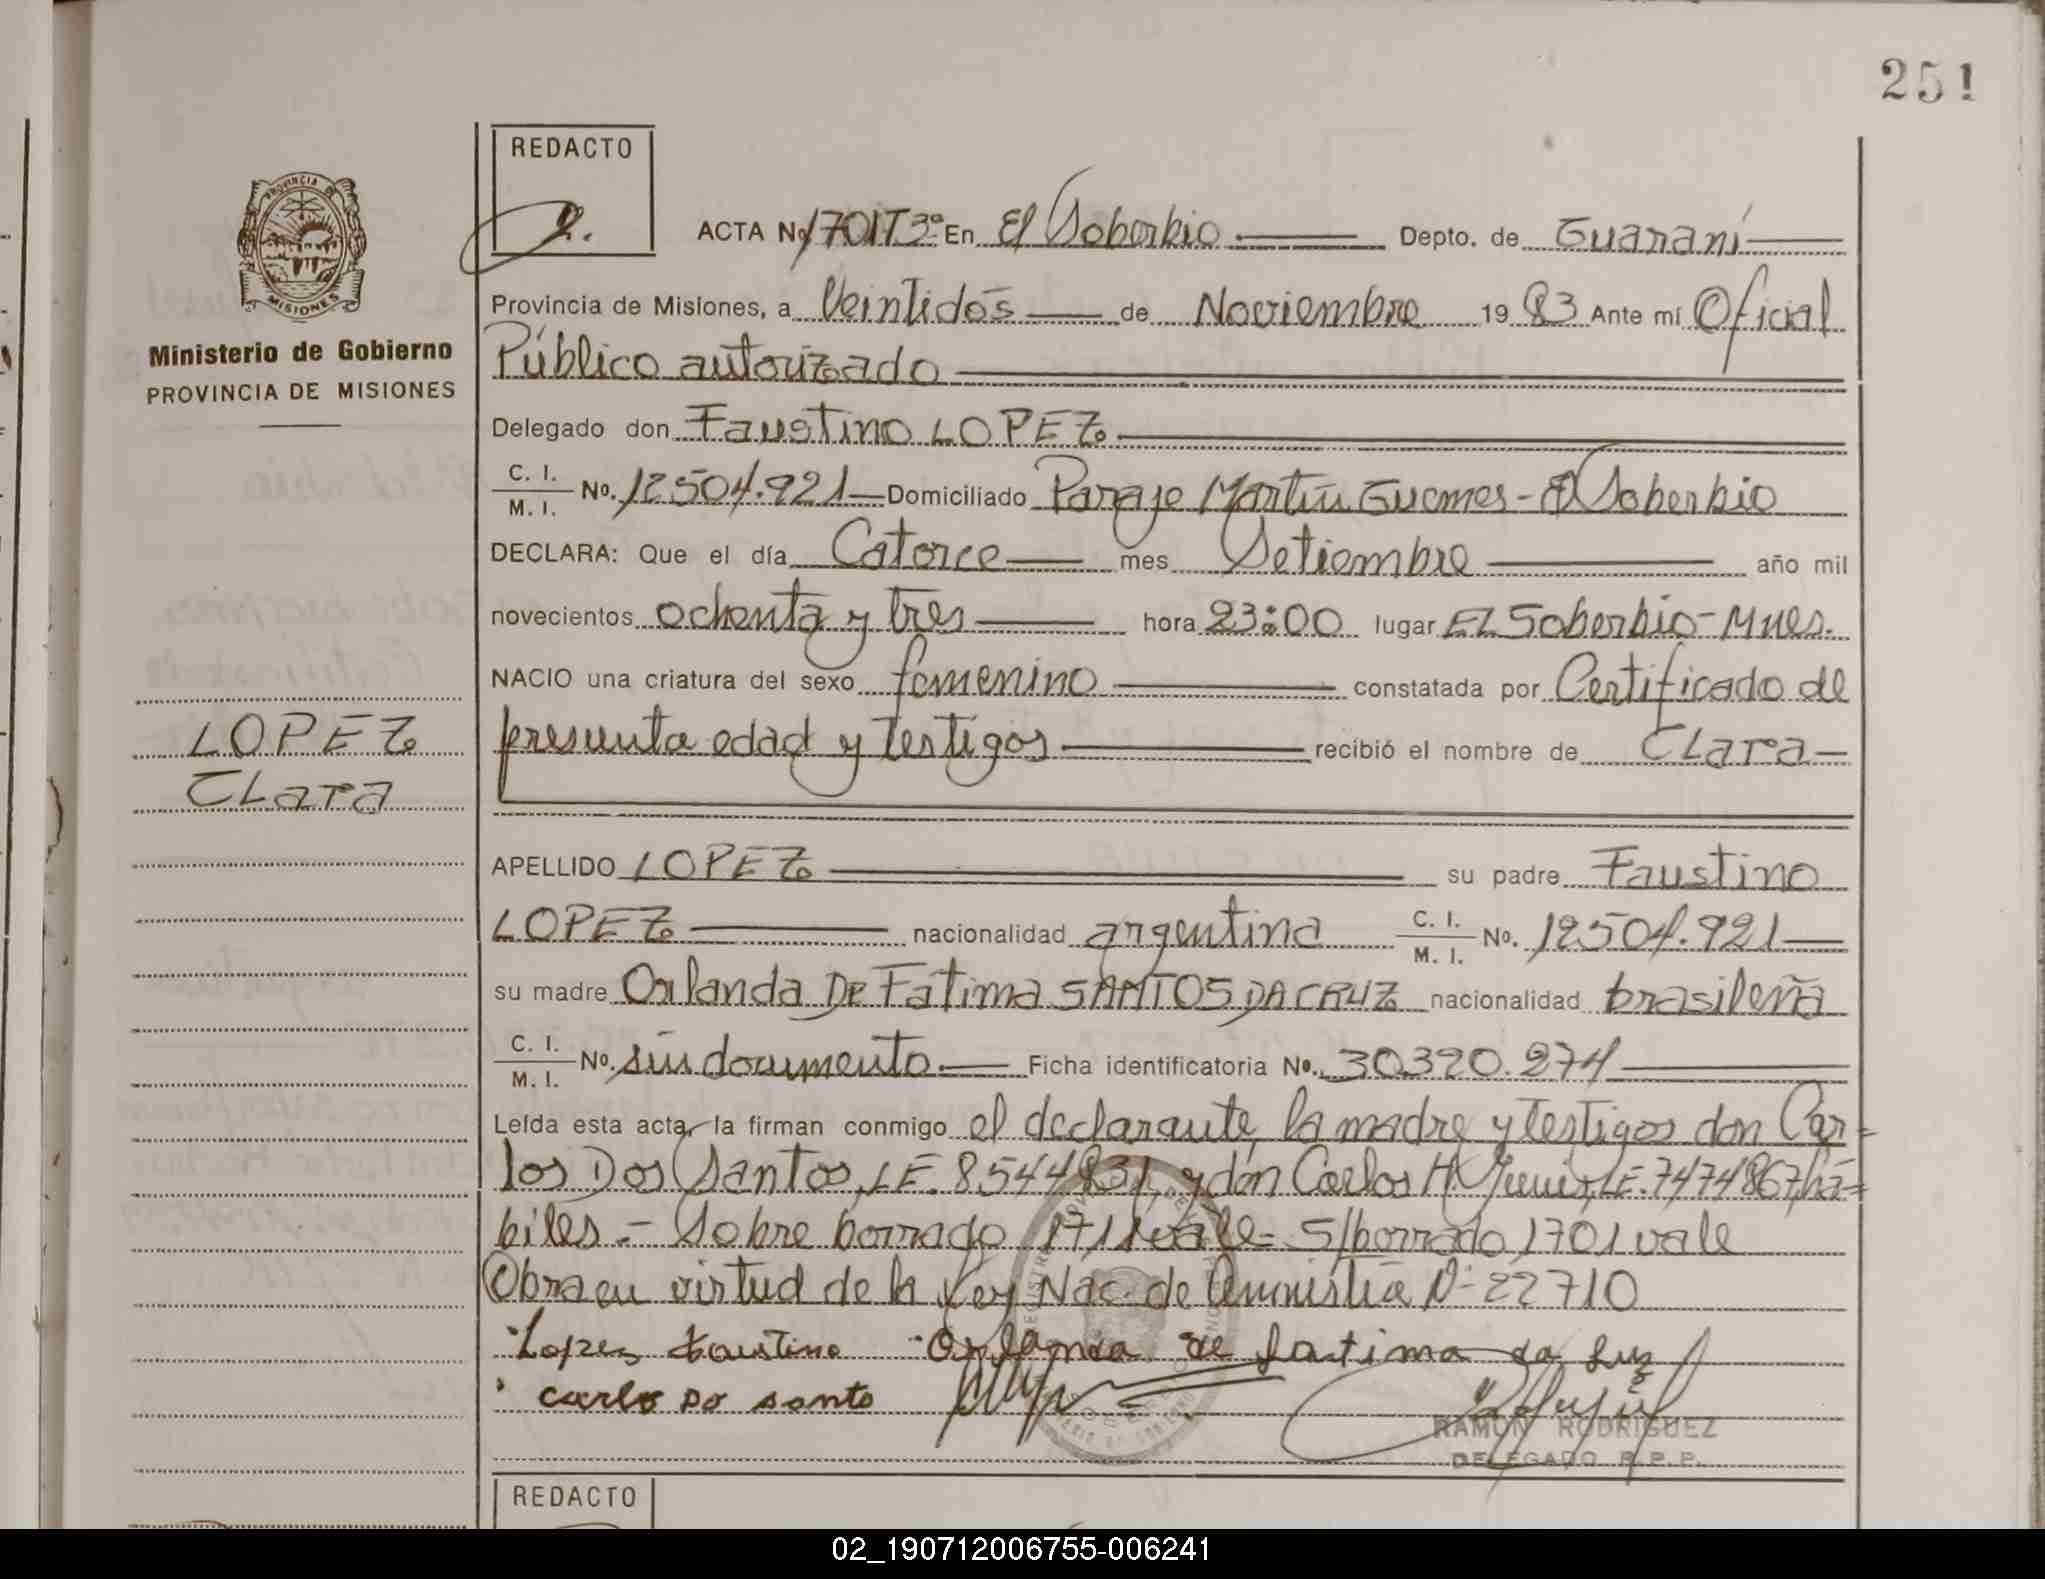 251
REDACTO
ACTA No. 1701T3º En El Soberbio Depto. de Guaraní
Provincia de Misiones, a Veintidós de Noviembre 1983 Ante mí Oficial
Público autorizado
Delegado don Faustino LOPEZ
C. I. / M. I. No. 12504.921 Domiciliado Paraje Martín Guemes - El Soberbio
DECLARA: Que el día Catorce mes Setiembre año mil
novecientos ochenta y tres hora 23:00 lugar EL Soberbio - Mnes.
NACIO una criatura del sexo femenino constatada por Certificado de
presunta edad y testigos recibió el nombre de CLara
APELLIDO LOPEZ su padre Faustino
LOPEZ nacionalidad argentina C. I. / M. I. No. 12504.921
su madre Orlanda DE Fatima SANTOS DA CRUZ nacionalidad brasileña
C. I. / M. I. No. sin documento. Ficha identificatoria No. 30.320.274
Leída esta acta, la firman conmigo el declarante, la madre y testigos don Car=
los Dos Santos, LE. 8.544.831, y don Carlos H. LE. 7474867, há=
biles. - Sobre borrado 1711 vale - S/borrado 1701 vale
Obra en virtud de la Ley Nac. de Amnistia Nº 22710
Lopez Faustino Orlanda de fatima da luz
carlo do santo
RAMON RODRIGUEZ
DELEGADO R.P.P.
PROVINCIA DE
MISIONES
Ministerio de Gobierno
PROVINCIA DE MISIONES
LOPEZ
CLara
REDACTO
02_190712006755-006241